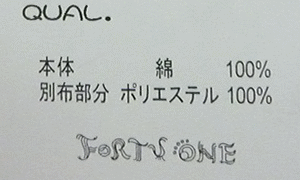 QUAL.
本体 綿 100%
別布部分 ポリエステル 100%
FORTY ONE